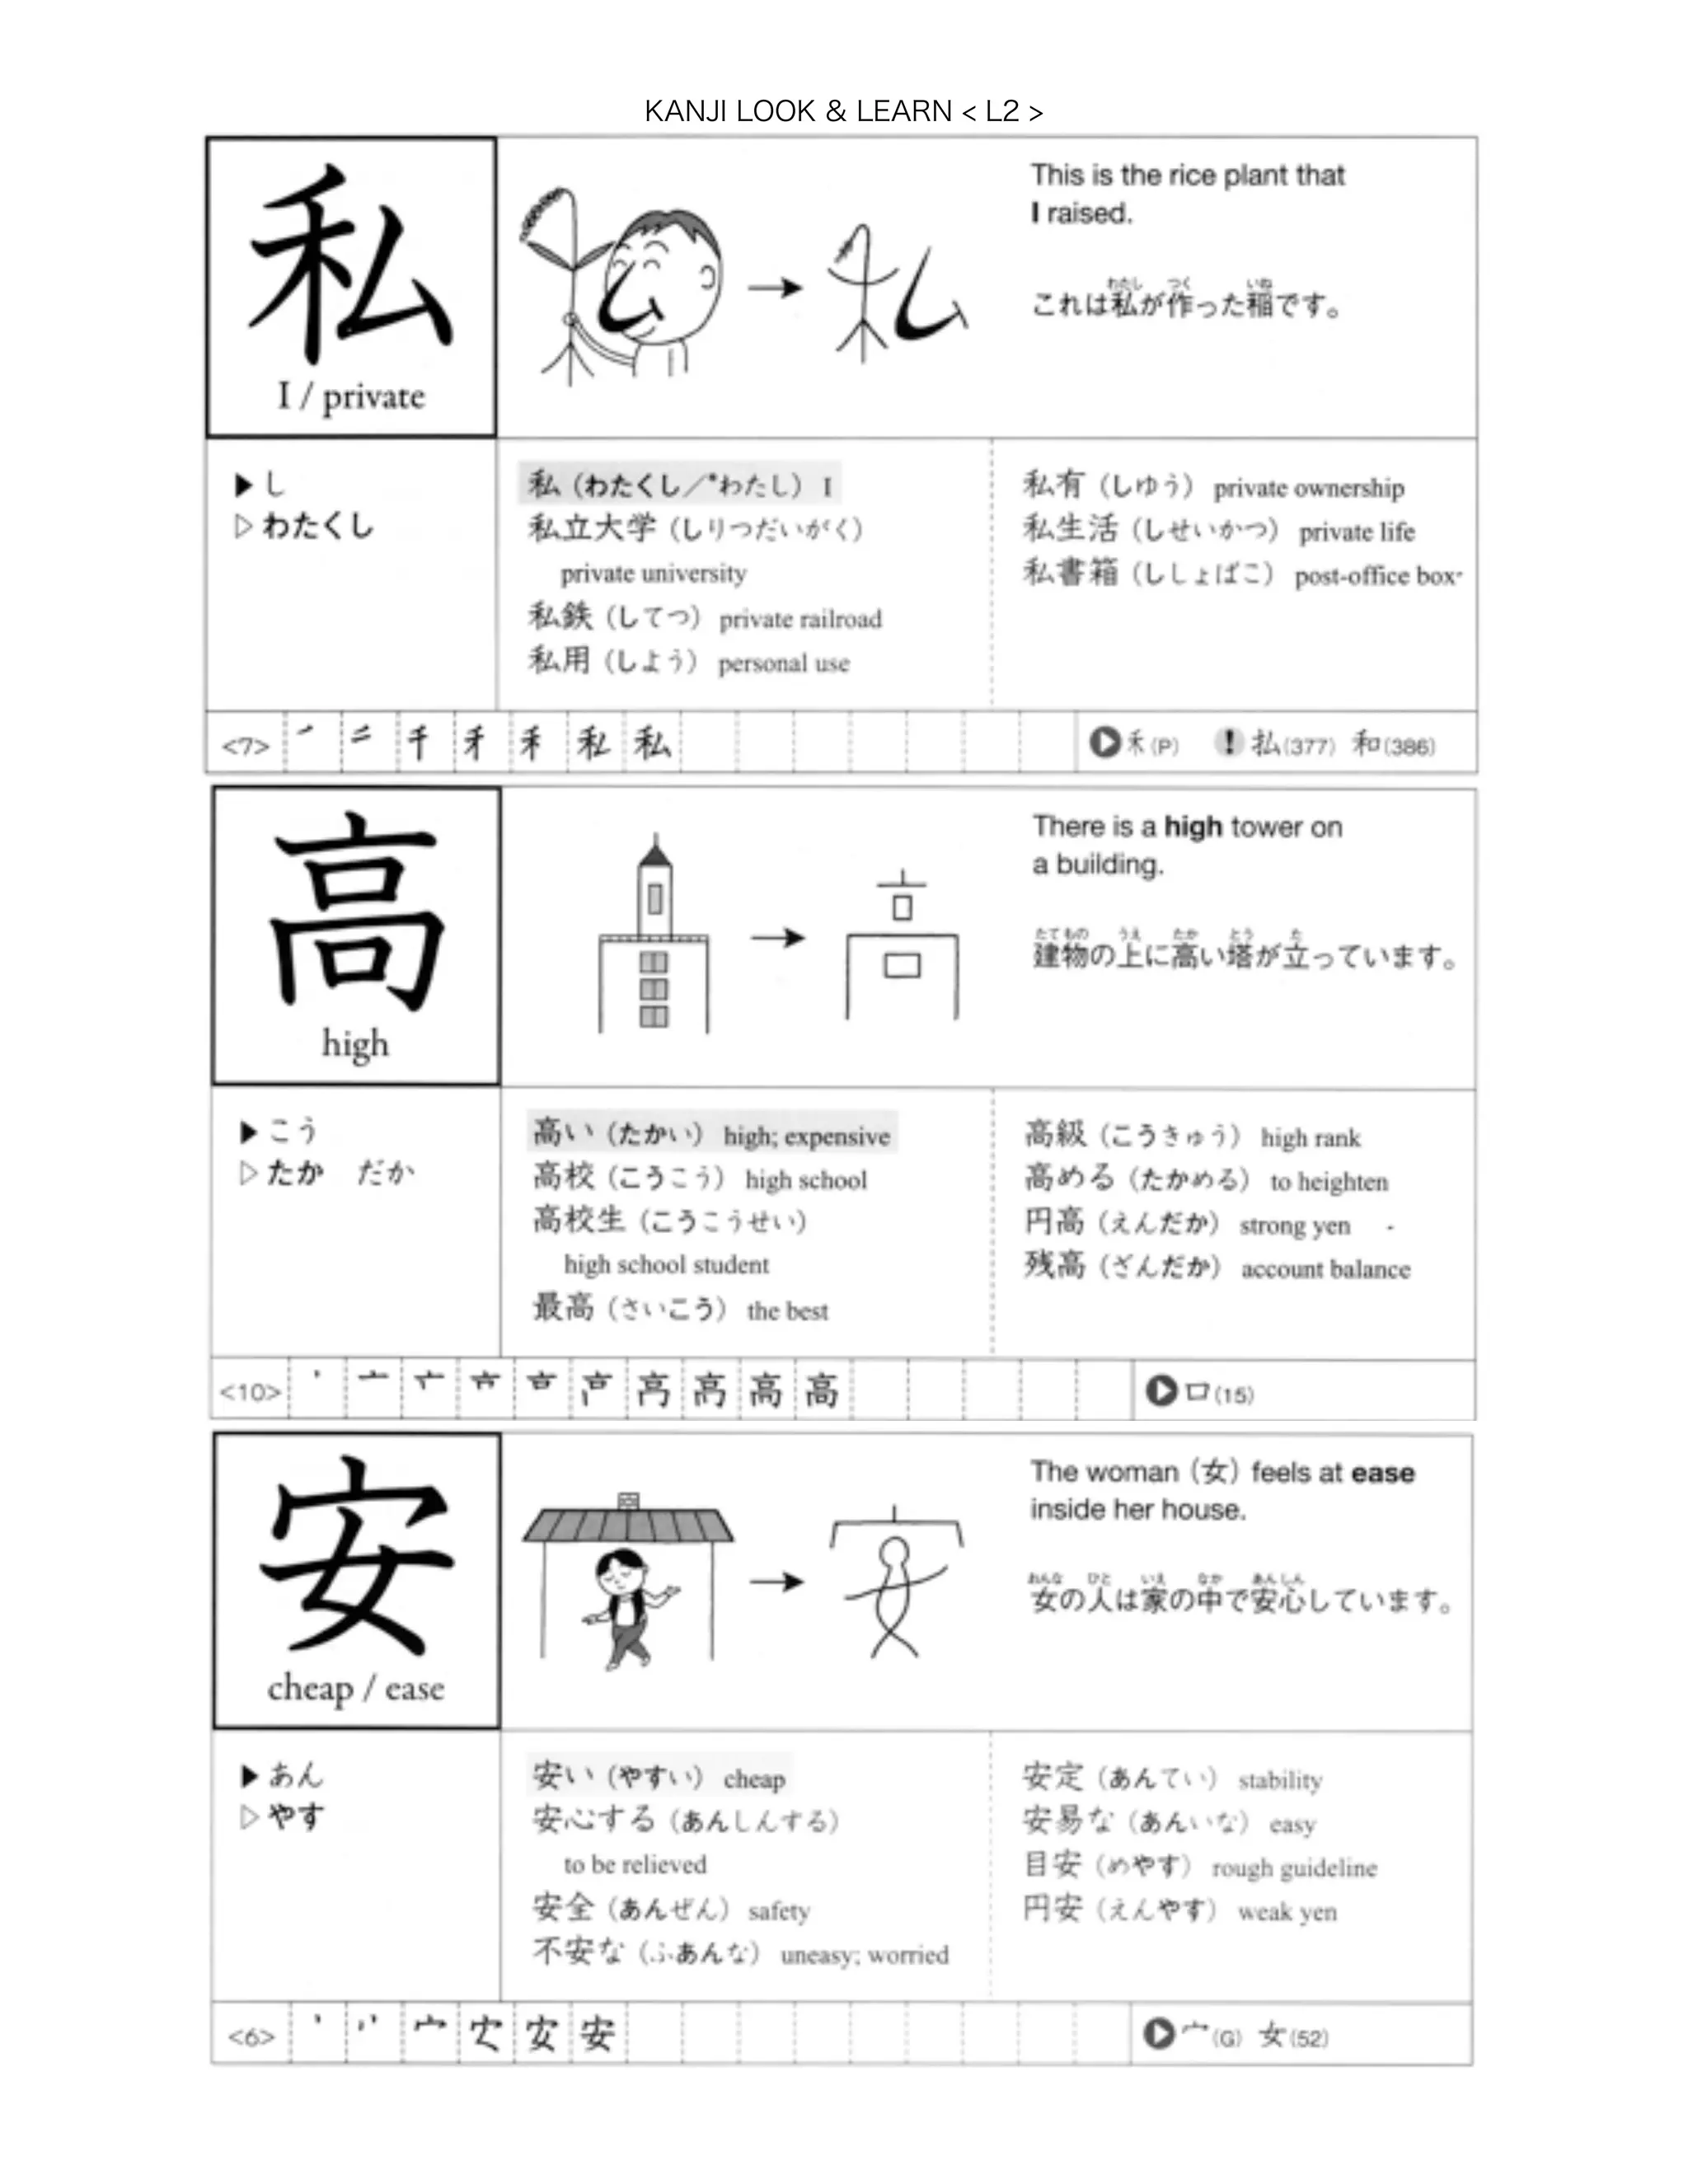 KANJI LOOK & LEARN < L2 >
私
I / private
This is the rice plant that
I raised.
わたし つく いね
これは私が作った稲です。
▶ し
▷ わたくし
私（わたくし／*わたし） I
私立大学（しりつだいがく）
private university
私鉄（してつ） private railroad
私用（しよう） personal use
私有（しゆう） private ownership
私生活（しせいかつ） private life
私書箱（ししょばこ） post-office box
<7>
私
禾(P) ! 払(377) 和(386)
高
high
There is a high tower on
a building.
たてもの うえ たか とう た
建物の上に高い塔が立っています。
▶ こう
▷ たか だか
高い（たかい） high; expensive
高校（こうこう） high school
高校生（こうこうせい）
high school student
最高（さいこう） the best
高級（こうきゅう） high rank
高める（たかめる） to heighten
円高（えんだか） strong yen
残高（ざんだか） account balance
<10>
高
口(15)
安
cheap / ease
The woman（女）feels at ease
inside her house.
おんな ひと いえ なか あんしん
女の人は家の中で安心しています。
▶ あん
▷ やす
安い（やすい） cheap
安心する（あんしんする）
to be relieved
安全（あんぜん） safety
不安な（ふあんな） uneasy; worried
安定（あんてい） stability
安易な（あんいな） easy
目安（めやす） rough guideline
円安（えんやす） weak yen
<6>
安
宀(G) 女(52)